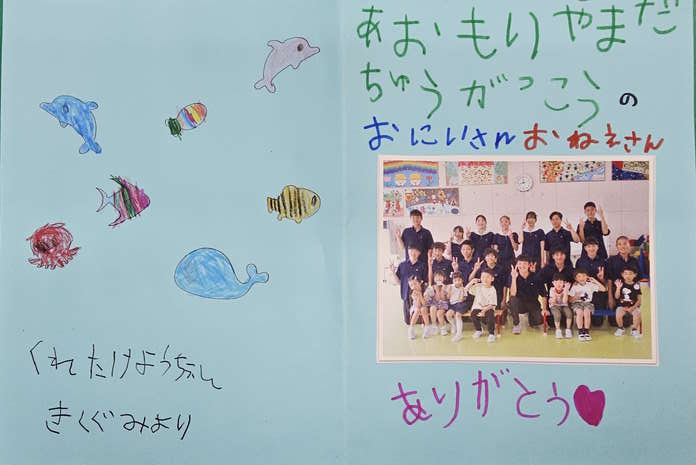 くれたけようちえん
きくぐみより
あおもりやまだ
ちゅうがっこうの
おにいさんおねえさん
ありがとう♥